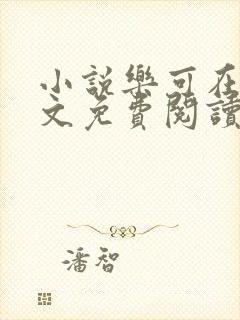 小説樂可在
文免費閱讀
潘智